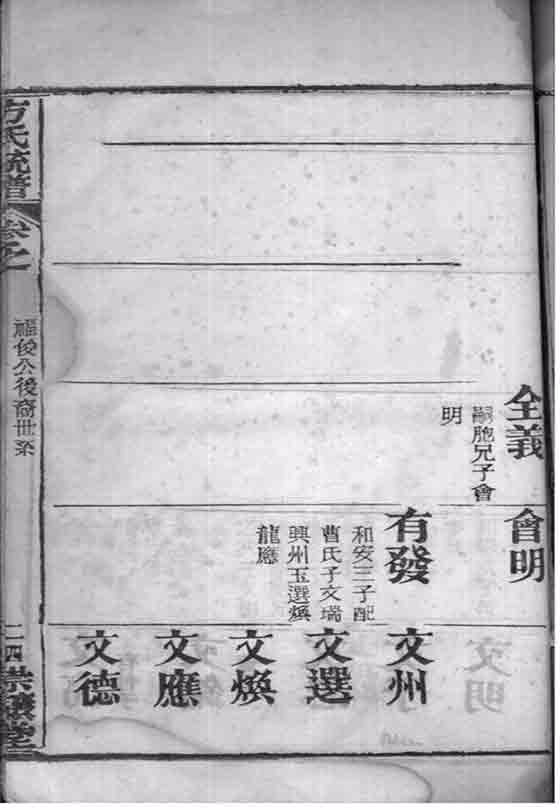 全義
嗣胞兄子會
明
會明
有發
和安三子配
曹氏子文瑞
興州玉選煥
龍應
文州
文選
文煥
文應
文德
方氏統譜
卷之
福俊公後裔世系
二四